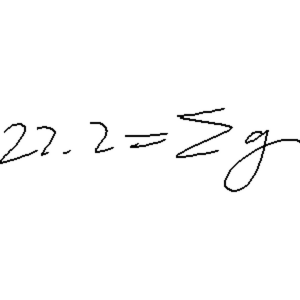 22.2 = Σg